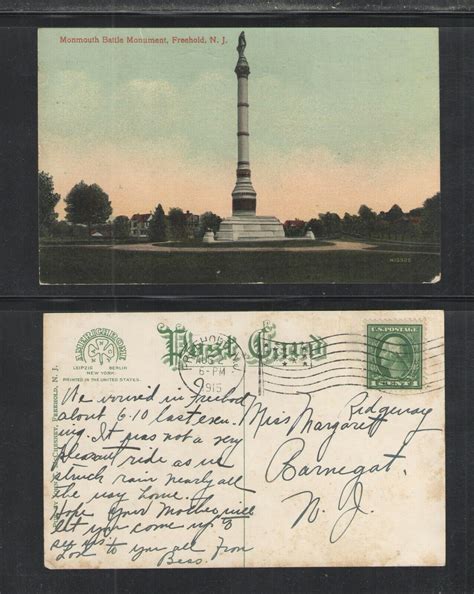 Monmouth Battle Monument, Freehold, N. J.
Post Card
LEIPZIG BERLIN
NEW YORK
PRINTED IN THE UNITED STATES.
FREEHOLD, N.J.
6-PM
1915
U.S. POSTAGE
1 CENT 1
We arrived in Freehold
about 6.10 last even
ing. It was not a very
pleasant ride as we
struck rain nearly all
the way home.
Hope your Mother will
let you come up to
see us
Love to you all. From
Bess.
Miss Margaret
Ridgway
Barnegat,
N. J.